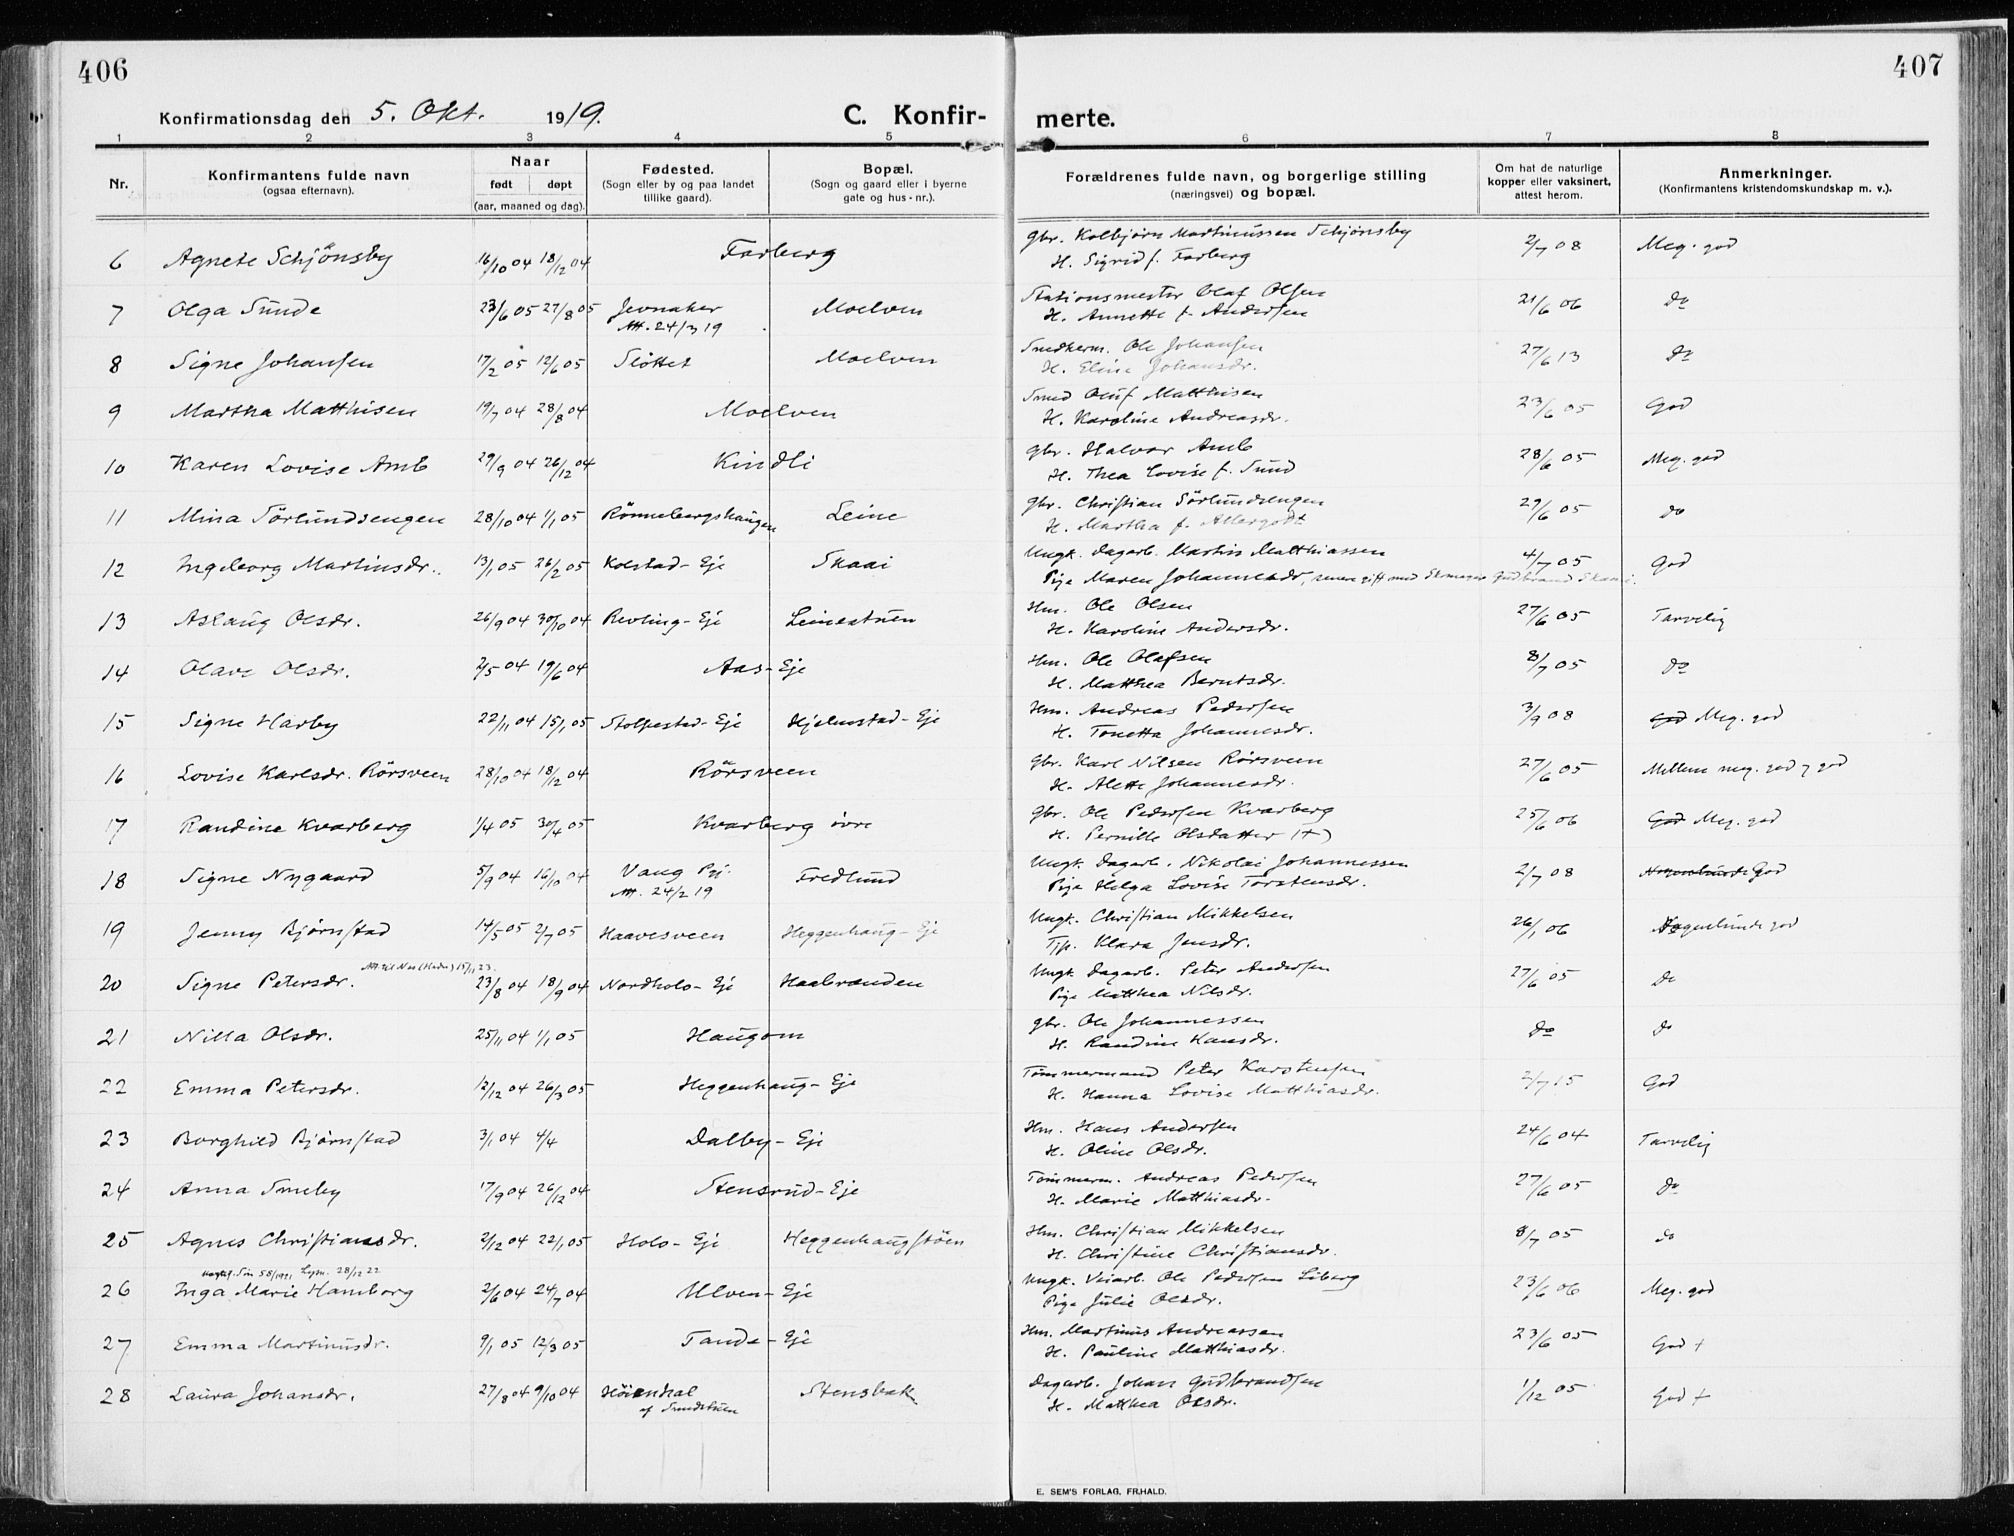 406
407
Konfirmationsdag den 5. Okt. 1919.
C. Konfirmerte.
1 2 3 4 5 6 7 8
Nr.
Konfirmantens fulde navn
(ogsaa efternavn).
Naar
født døpt
(aar, maaned og dag).
Fødested.
(Sogn eller by og paa landet
tillike gaard).
Bopæl.
(Sogn og gaard eller i byerne
gate og hus-nr.).
Forældrenes fulde navn, og borgerlige stilling
(næringsvei) og bopæl.
Om hat de naturlige
kopper eller vaksinert,
attest herom.
Anmerkninger.
(Konfirmantens kristendomskundskap m. v.).
6 Agnete Schjönsby 16/10 04 18/12 04 Farberg Gbr. Kolbjørn Martinussen Schjønsby 2/7 08 Meg. god
H. Sigrid f. Farberg
7 Olga Sunde 23/6 05 27/8 05 Jevnaker Moelven Stationsmester Olaf Olsen 21/6 06 Do
Att. 24/3 19 H. Annette f. Andersen
8 Signe Johansen 17/2 05 12/6 05 Slöttet Moelven Smedherm. Ole Johansen 27/6 13 Do
H. Eline Johansdr.
9 Martha Matthisen 19/7 04 28/8 04 Moelven Smed Oluf Matthisen 23/6 05 God
H. Karoline Andreasdr.
10 Karen Lovise Amb 29/9 04 26/12 04 Kindli Gbr. Halvor Amb 28/6 05 Meg. god
H. Thea Lovise f. Sund
11 Mina Sörlundsengen 28/10 04 1/1 05 Rönnebergshaugen Leine Gbr. Christian Sörlundsengen 29/6 05 do
H. Martha f. Allergodt
12 Ingeborg Martinsdr. 13/1 05 26/2 05 Kolstad-Eje Skaai Ungk. Dagarb. Martin Matthiassen 4/7 05 God
Pige Maren Johannesdr, senere gift med Gudbrand Skaai.
13 Aslaug Olsdr. 26/9 04 30/10 04 Revling-Eje Leinestuen Hm. Ole Olsen 27/6 05 Tarvelig
H. Karoline Andersdr.
14 Olave Olsdr. 2/5 04 19/6 04 Aas-Eje Hm. Ole Olafsen 8/7 05 Do
H. Matthea Berntsdr.
15 Signe Harby 22/11 04 15/1 05 Stolpestad-Eje Hjelmstad-Eje Hm. Andreas Pedersen 3/9 08 God Meg. god
H. Tonetta Johannesdr.
16 Lovise Karlsdr. Rörsveen 28/10 04 18/12 04 Rörsveen Gbr. Karl Nilsen Rörsveen 27/6 05 Mellem meg. god og god
H. Alette Johannesdr.
17 Randine Kvarberg 1/4 05 30/4 05 Kvarberg övre Gbr. Ole Pedersen Kvarberg 25/6 06 God Meg. god
H. Pernille Olsdatter (+)
18 Signe Nygaard 5/9 04 16/10 04 Vang Pgj. Fredlund Ungk. Dagarb. Nikolai Johannessen 2/7 08 Nogenlunde God
Att. 24/2 19 Pige Helga Lovise Torstensdr.
19 Jenny Bjørnstad 14/5 05 2/7 05 Haavesveen Heggenhaug-Eje Ungk. Christian Mikkelsen 26/1 06 Nogenlunde god
Tjp. Klara Jensdr.
20 Signe Petersdr. 23/8 04 18/9 04 Nordholo-Eje Haabranden Ungk. Dagarb. Peter Andersen 27/6 05 Do
Pige Matthea Nilsdr.
21 Nilla Olsdr. 25/11 04 1/1 05 Haugom Gbr. Ole Johannessen Do Do
H. Randine Hansdr.
22 Emma Petersdr. 12/12 04 26/3 05 Heggenhaug-Eje Tömmermand Peter Karstensen 2/7 15 God
H. Hanna Lovise Matthiasdr.
23 Borghild Bjørnstad 3/1 04 4/4 Dalby-Eje Hm. Hans Andersen 24/6 04 Tarvelig
H. Oline Olsdr.
24 Anna Smeby 17/9 04 26/12 04 Stensrud-Eje Tömmerm. Andreas Pedersen 27/6 05 Do
H. Marie Matthiasdr.
25 Agnes Christiansdr. 2/12 04 22/1 05 Holo-Eje Heggenhaugstöen Hm. Christian Mikkelsen 8/7 05 do
H. Christine Christiansdr.
26 Inga Marie Hamborg 2/6 04 24/7 04 Ulven-Eje Ungk. Veiarb. Ole Pedersen Liberg 23/6 06 Meg. god
Pige Julie Olsdr.
27 Emma Martinusdr. 9/1 05 12/3 05 Tande-Eje Hm. Martinus Andreassen 23/6 05 God +
H. Pauline Matthiasdr.
28 Laura Johansdr. 27/8 04 9/10 04 Höiendal Stensbak Dagarb. Johan Gudbrandsen 1/12 05 God +
af Sundstuen H. Matthea Olsdr.
E. SEM'S FORLAG, FR.HALD.